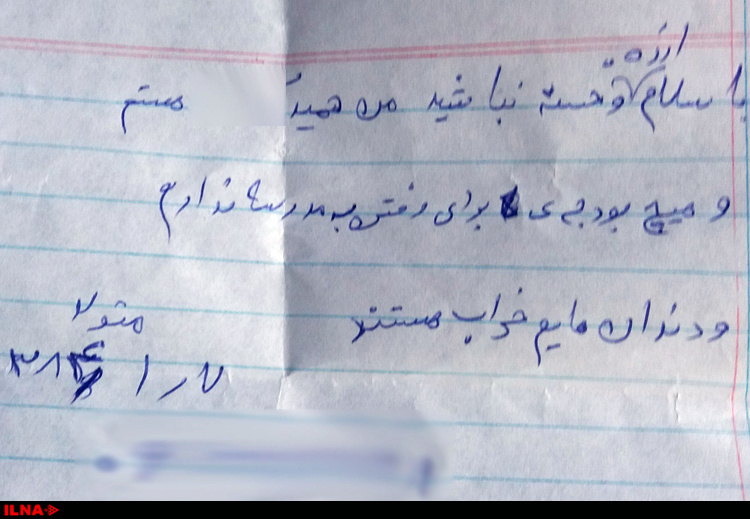 ارزه
با سلام و خسته نباشید من همید هستم
و هیچ بودجه ی برای رفتن به مدرسه ندارم
و دندان هایم خراب هستند
متولد
۷ ر ۱
ILNA